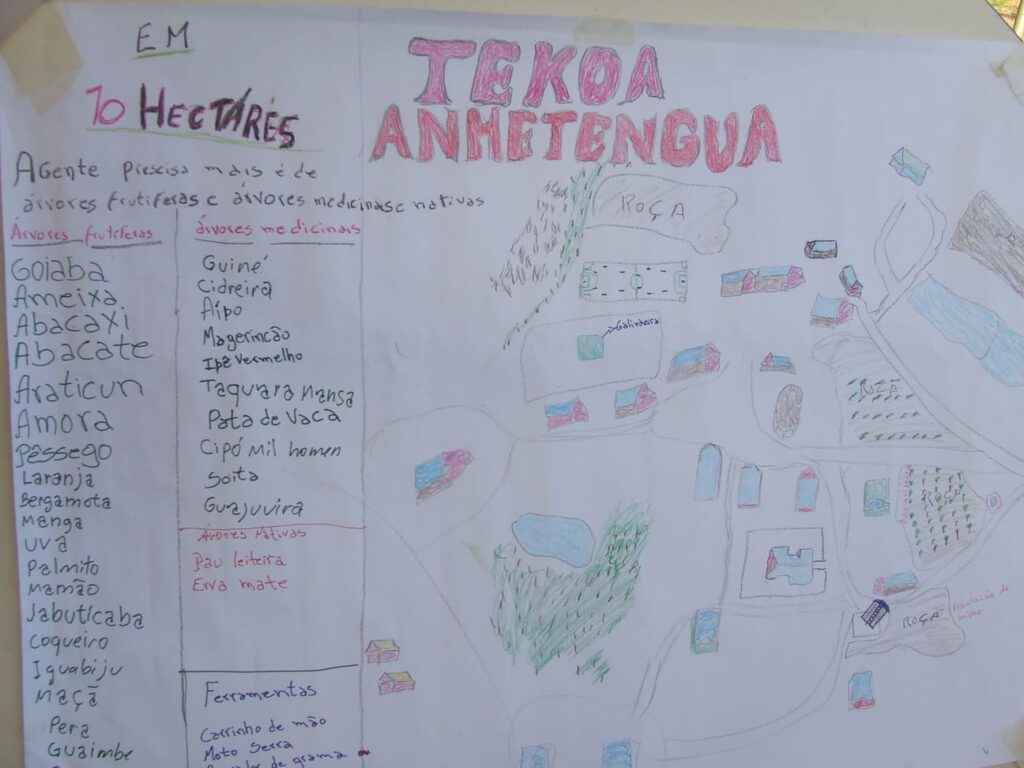 EM
10 HECTÁRES
TEKOA
ANHETENGUA
Agente prescisa mais é de
árvores frutiferas e árvores medicinas e nativas
Árvores frutiferas
Goiaba
Ameixa
Abacaxi
Abacate
Araticun
Amora
Pêssego
Laranja
Bergamota
Manga
Uva
Palmito
Mamão
Jabuticaba
Coqueiro
Iguabiju
Maçã
Pera
Guaimbe
árvores medicinais
Guiné
Cidreira
Aipo
Magericão
Ipê Vermelho
Taquara Mansa
Pata de Vaca
Cipó Mil homen
Soita
Guajuvira
Árvores Nativas
Pau leiteira
Erva mate
Ferramentas
Carrinho de mão
Moto Serra
de grama
ROÇA
Galinheiro
ROÇA
ROÇA